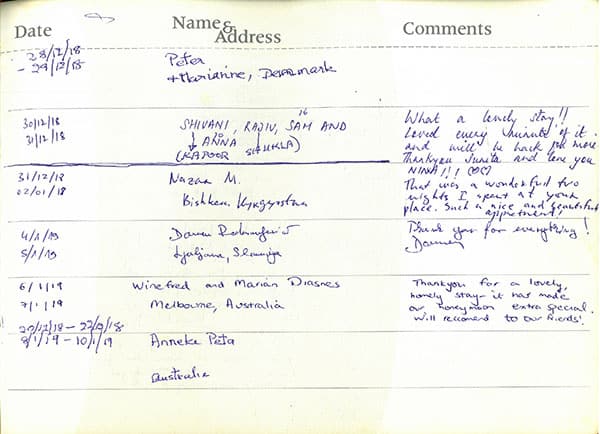 Date
Name & Address
Comments
28/12/18
- 29/12/18
Peter
+ Marianne, Denmark
30/12/18
31/12/18
SHIVANI, RAJIV, SAM AND
ARINA
(KAPOOR SHUKLA)
What a lovely stay!!
Loved every minute of it.
and will be back for more
Thankyou Sunita and love you
NINA!!!
31/12/18
02/01/18
Nazar M.
Bishkek, Kyrgyzstan
That was a wonderful two
nights I spent at your
place. Such a nice and beautiful
appartment!
4/1/19
5/1/19
Ljubljana, Slovenija
Thank you for everything!
6/1/19
7/1/19
Winefred and Marian Diasnes
Melbourne, Australia
Thankyou for a lovely,
homely stay - it has made
our honeymoon extra special.
Will recomend to our friends!
20/12/18 - 22/12/18
8/1/19 - 10/1/19
Anneke Peta
Australia